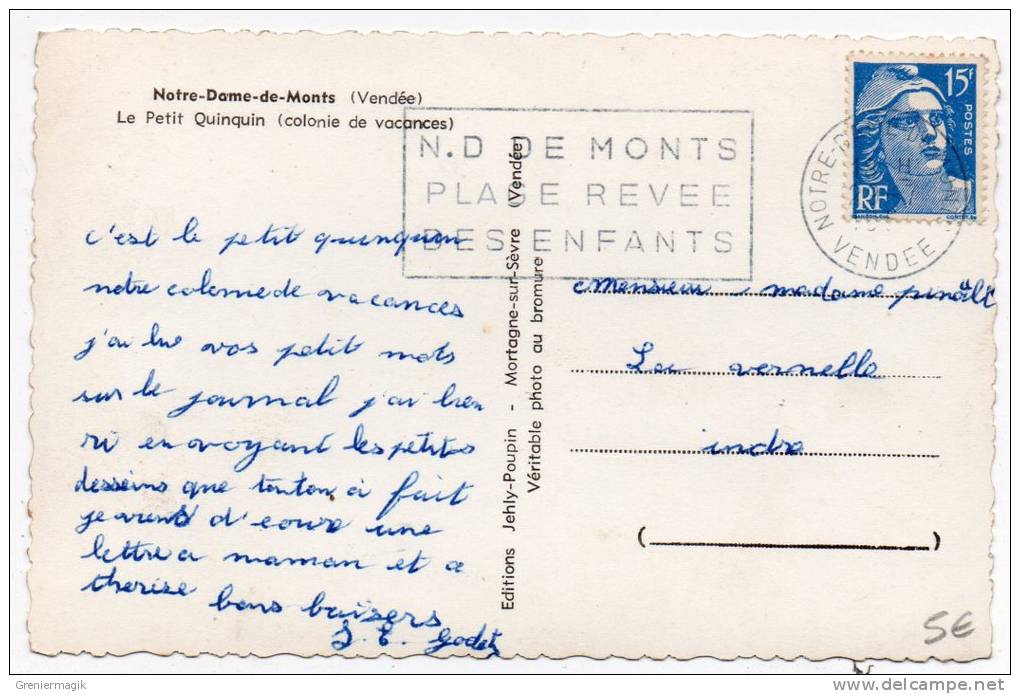 Notre-Dame-de-Monts (Vendée)
Le Petit Quinquin (colonie de vacances)
N.D DE MONTS
PLAGE REVEE
DES ENFANTS
15F
POSTES
RF
NOTRE-D
VENDEE
c'est le petit quinquin
notre colonie de vacances
j'ai lu vos petit mots
sur le journal j'ai bien
ri en voyant les petits
desseins que tonton à fait
je viens d'ecrire une
lettre a maman et a
therese bons baisers
J. E. Godet
Editions Jehly-Poupin - Mortagne-sur-Sèvre (Vendée)
Véritable photo au bromure
Monsieur madame
La vernelle
indre
( )
5€
Greniermagik
www.delcampe.net